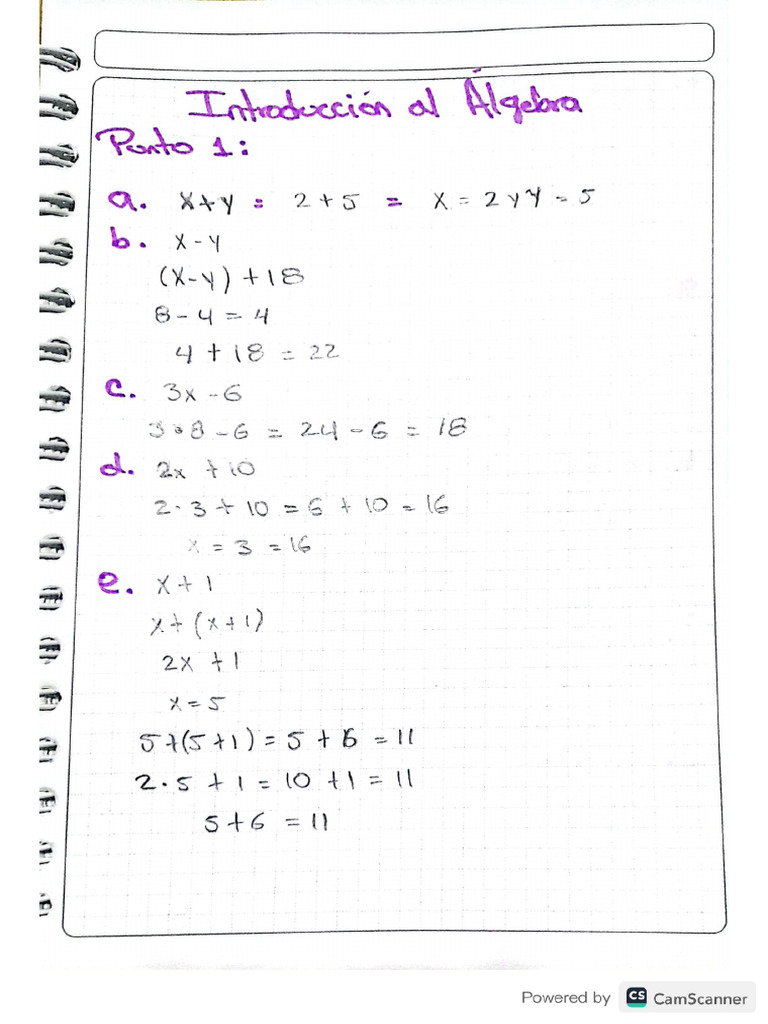 Introducción al Álgebra
Punto 1:
a. x+y = 2+5 = x = 2 y y = 5
b. x-y
(x-y) +18
8-4 = 4
4 + 18 = 22
c. 3x -6
3•8-6 = 24-6 = 18
d. 2x +10
2·3+10 = 6 + 10 = 16
x = 3 = 16
e. x+1
x+(x+1)
2x +1
x=5
5+(5+1) = 5 + 6 = 11
2·5 +1 = 10 +1 = 11
5+6 = 11
Powered by CS CamScanner